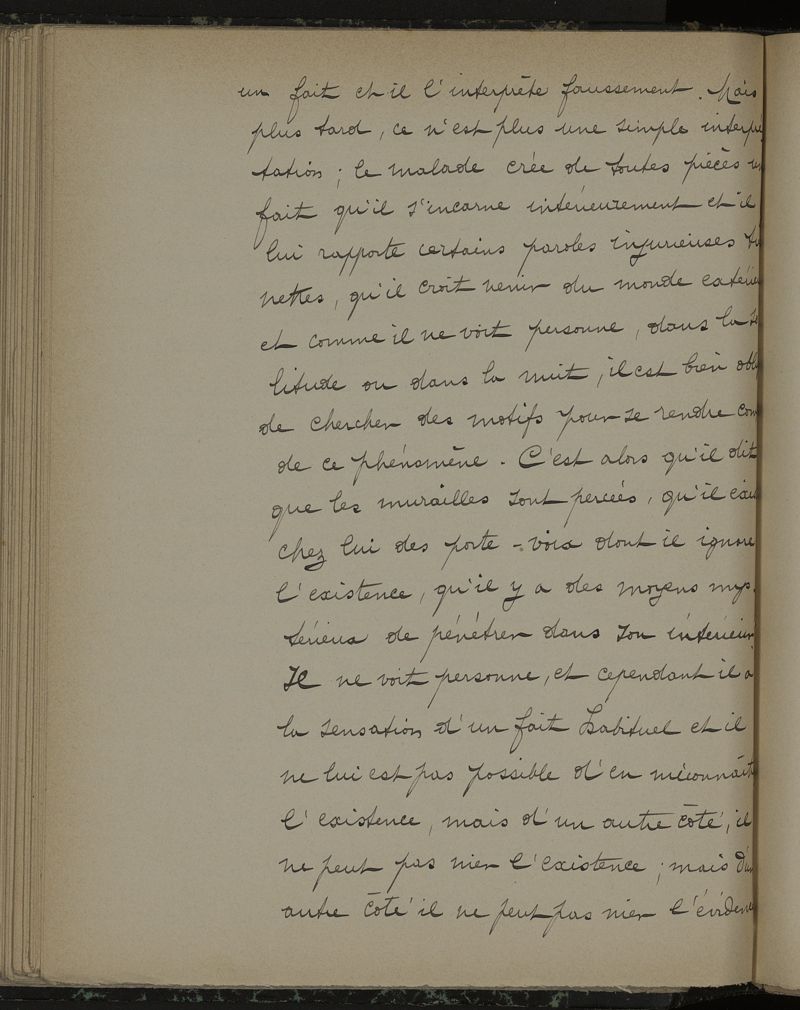 un fait et il l'interprète faussement. Mais
plus tard, ce n'est plus une simple interpré
tation ; le malade crée de toutes pièces un
fait qu'il s'incarne intérieurement et il
lui rapporte certains paroles injurieuses
nettes, qu'il croit venir du monde extérieu
et comme il ne voit personne, dans la so
litude ou dans la nuit, il est bien obli
de chercher des motifs pour se rendre com
de ce phénomène. C'est alors qu'il dit
que les murailles sont percées, qu'il exis
chez lui des porte-voix dont il ignore
l'existence, qu'il y a des moyens mys-
térieux de pénétrer dans son intérieur
Il ne voit personne, et cependant il a
la sensation d'un fait habituel et il
ne lui est pas possible d'en méconnaît
l'existence, mais d'un autre côté, il
ne peut pas nier l'existence ; mais d'un
autre côté il ne peut pas nier l'évidence